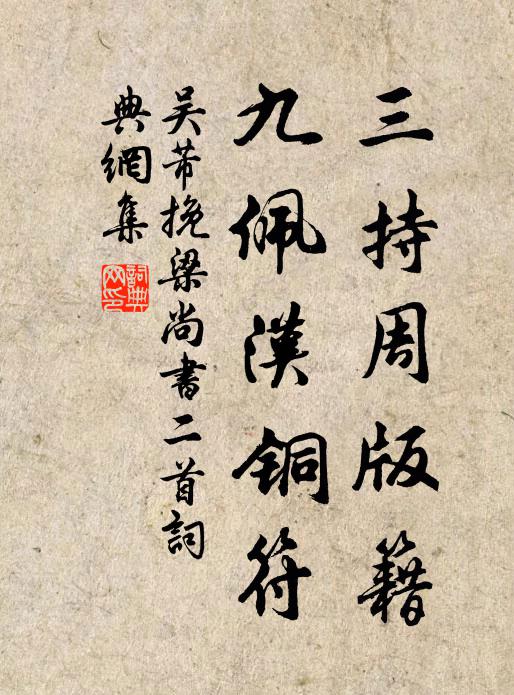 三持周版籍
九佩汉铜符
吴芾挽梁尚書二首詞
典網集
詞典
网印